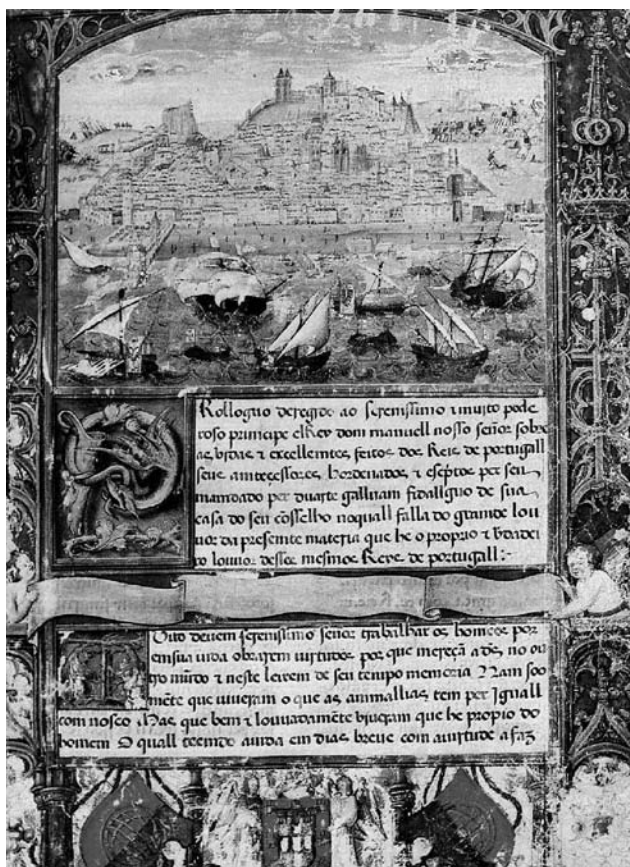 Rolloguo deregido ao serenissimo ⁊ muito pode
roso principe elRey dom manuell nosso señor sobre
as vidas ⁊ excellemtes feitos dos Reis de portugall
seus amteçessores, hordenados, ⁊ espritos per seu
mamdado per duarte galluam fidallguo de sua
casa ⁊ do seu cõsselho noquall falla do gramde lou
vor da presemte materia que he o proprio ⁊ verdadei
ro louvor desses mesmos Reys de portugall :-
Uito devem serenissimo senor trabalhar os homẽes por
em sua vida obrarem virtudes por que mereçã a dš, no ou
tro mũdo ⁊ neste leixem de seu tempo memoria Nam soo
mẽte que viveram o que as, animallias, tem per Iguall
com nosco Mas que bem ⁊ louvadamẽte viveram que he propio do
homem O quall teemdo avida em dias, breve com avirtude a faz